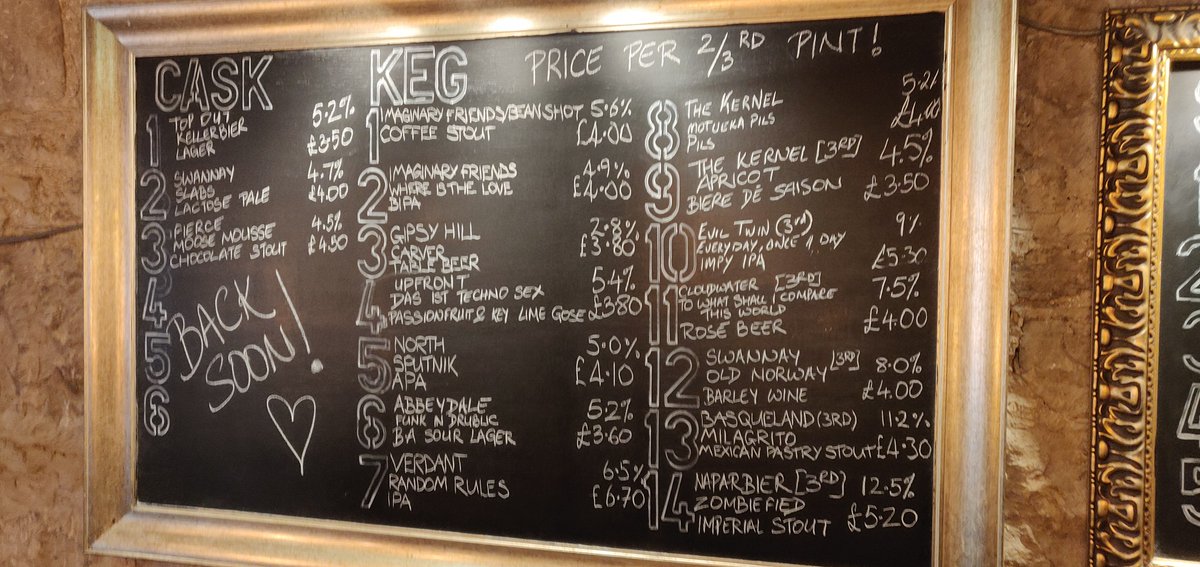 CASK
1 TOP OUT 5.2%
KELLERBIER
LAGER £3.50
2 SWANNAY 4.7%
SLABS
LACTOSE PALE £4.00
3 PIERCE 4.5%
MOOSE MOUSSE
CHOCOLATE STOUT £4.50
4
5
6
BACK
SOON!
KEG PRICE PER 2/3RD PINT!
1 IMAGINARY FRIENDS/BEAN SHOT 5.6%
COFFEE STOUT £4.00
2 IMAGINARY FRIENDS 4.9%
WHERE IS THE LOVE
BIPA £4.00
3 GIPSY HILL 2.8%
CARVER
TABLE BEER £3.80
4 UPFRONT 5.4%
DAS IST TECHNO SEX
PASSIONFRUIT & KEY LIME GOSE £3.80
5 NORTH 5.0%
SPUTNIK
APA £4.10
6 ABBEYDALE 5.2%
FUNK IN DRUBLIC
BA SOUR LAGER £3.60
7 VERDANT 6.5%
RANDOM RULES
IPA £6.70
8 THE KERNEL
MOTUEKA PILS
PILS
9 THE KERNEL [3RD] 4.5%
APRICOT
BIERE DÉ SAISON £3.50
10 EVIL TWIN (3RD) 9%
EVERYDAY, ONCE A DAY
IMPY IPA £5.30
11 CLOUDWATER [3RD] 7.5%
TO WHAT SHALL I COMPARE
THIS WORLD
ROSE BEER £4.00
12 SWANNAY [3RD] 8.0%
OLD NORWAY
BARLEY WINE £4.00
13 BASQUELAND (3RD) 11.2%
MILAGRITO
MEXICAN PASTRY STOUT £4.30
14 NAPARBIER [3RD] 12.5%
ZOMBIEFIED
IMPERIAL STOUT £5.20